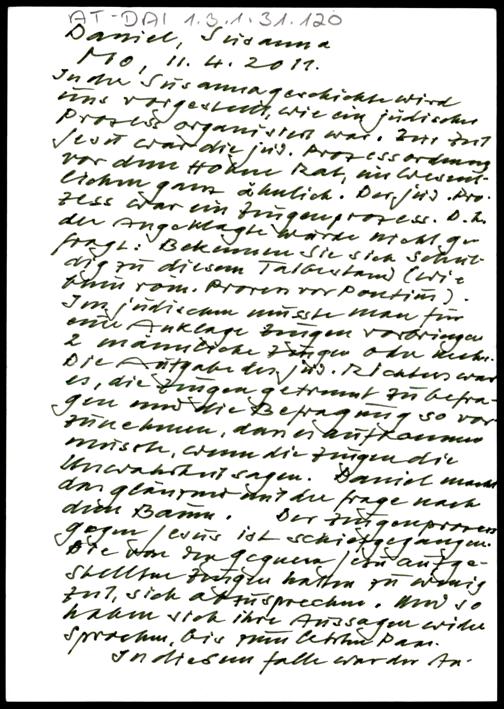 AT-DAI 1.3.1.31.120
Daniel, Susanna
Mo, 11.4.2011.
In der Susannageschichte wird
uns vorgestellt, wie ein jüdischer
Prozess organisiert war. Zur Zeit
Jesu war die jüd. Prozessordnung
vor dem Hohen Rat, im Wesent-
lichen ganz ähnlich. Der jüd. Pro-
zess war ein Zeugenprozess. D.h.
der Angeklagte wurde nicht ge-
fragt: Bekennen Sie sich schul-
dig zu diesem Tatbestand (wie
beim röm. Prozess vor Pontius).
Im jüdischen musste man für
eine Anklage Zeugen vorbringen
2 männliche Zeugen oder mehr.
Die Aufgabe des jüd. Richters war
es, die Zeugen getrennt zu befra-
gen und die Befragung so vor-
zunehmen, dass es aufkommen
musste, wenn die Zeugen die
Unwahrheit sagen. Daniel macht
das glänzend mit der Frage nach
dem Baum. Der Zeugenprozess
gegen Jesus ist schiefgegangen.
Die von den Gegnern Jesu aufge-
stellten Zeugen hatten zu wenig
Zeit, sich abzusprechen. Und so
haben sich ihre Aussagen wider-
sprochen, bis zum letzten Paar.
In diesem Falle war der An-